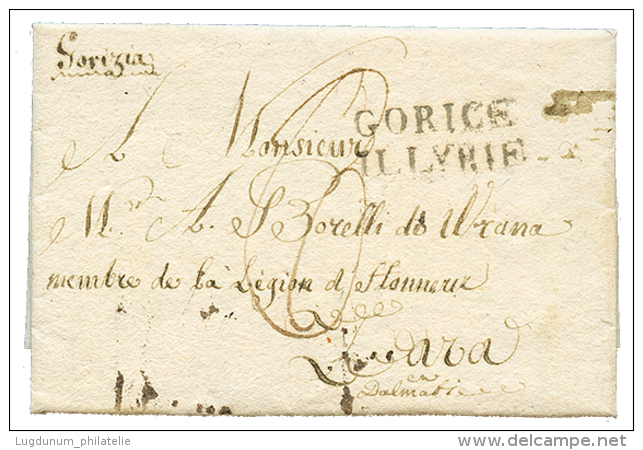 Gorizia
GORICE
ILLYRIE
A Monsieur
Mr. A. Borelli de Wrana
membre de la Légion d'Honneur
Zara
en
Dalmatie
Lugdunum_philatelie
delcampe.net